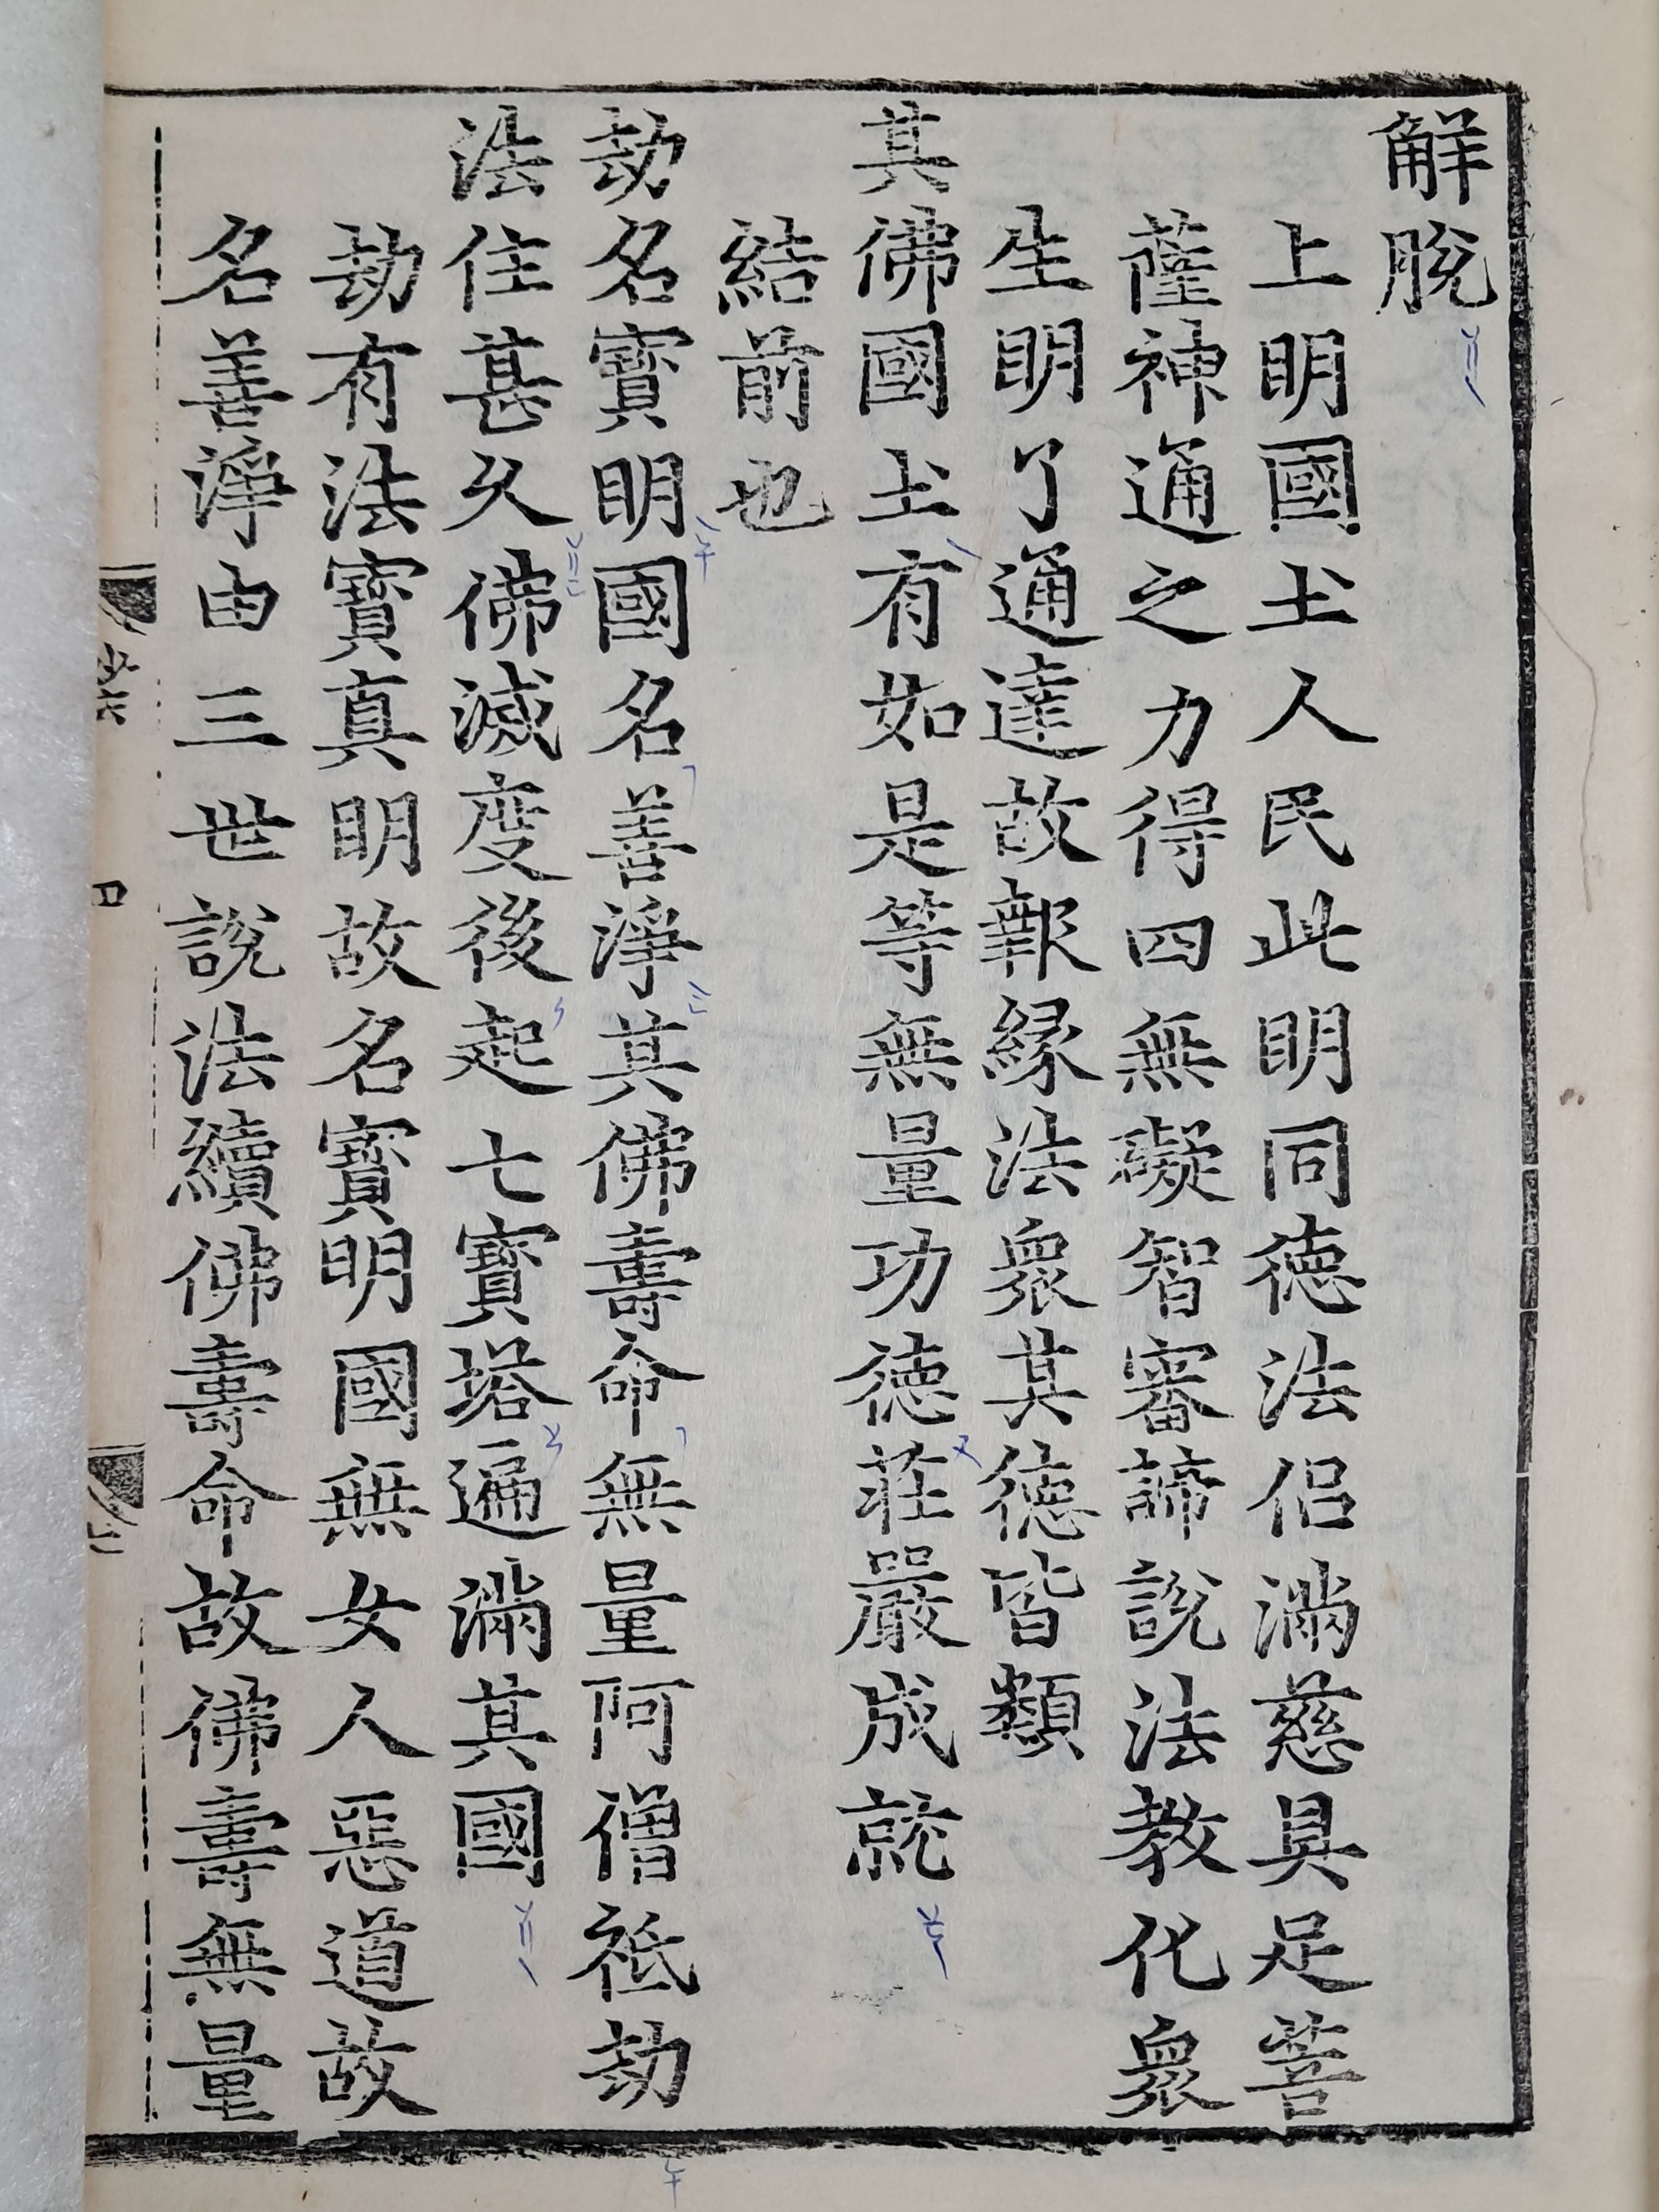 解脫
上明國土人民此明同德法侶滿慈具足菩
薩神通之力得四無礙智審諦說法教化衆
生明了通達故報緣法衆其德皆類
其佛國土有如是等無量功德莊嚴成就
結前也
劫名寶明國名善淨其佛壽命無量阿僧祇劫
法住甚久佛滅度後起七寶塔遍滿其國
劫有法寶真明故名寶明國無女人惡道故
名善淨由三世說法續佛壽命故佛壽無量